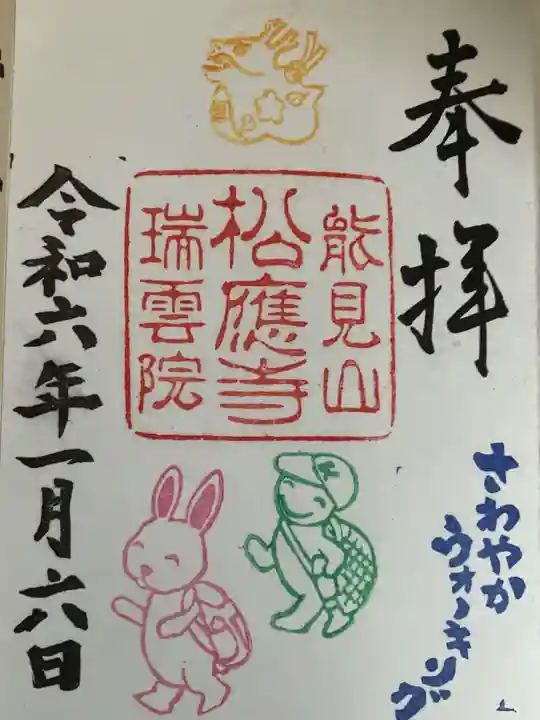 奉拝
能見山
松應寺
瑞雲院
令和六年一月六日
さわやか
ウォーキング